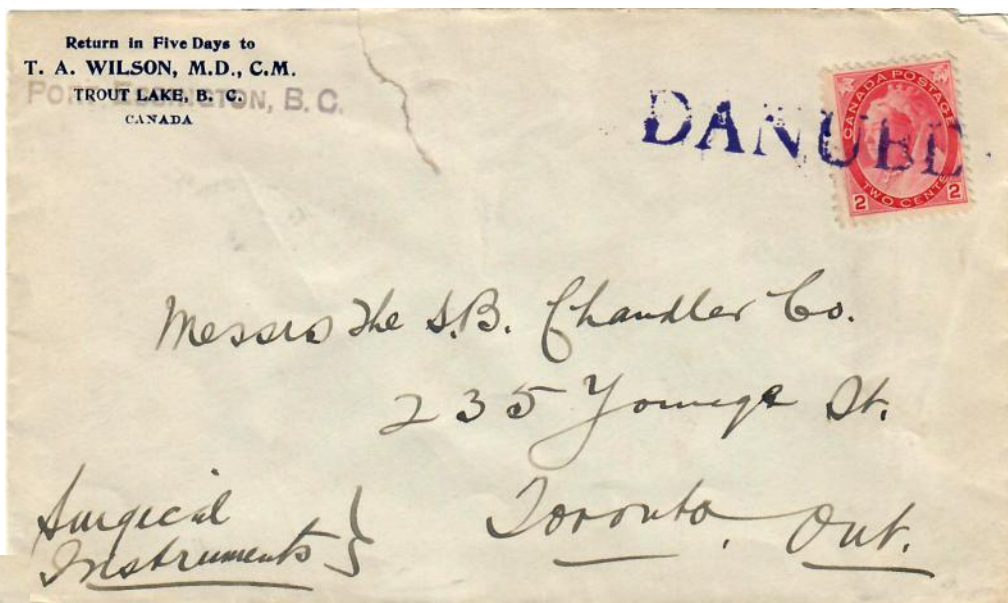 Return in Five Days to
T. A. WILSON, M.D., C.M.
TROUT LAKE, B. C.
PORT ESSINGTON, B.C.
CANADA
DANUBE
CANADA POSTAGE
TWO CENTS
2 2
Messrs The S.B. Chandler Co.
235 Younge St.
Toronto, Ont.
Surgical
Instruments